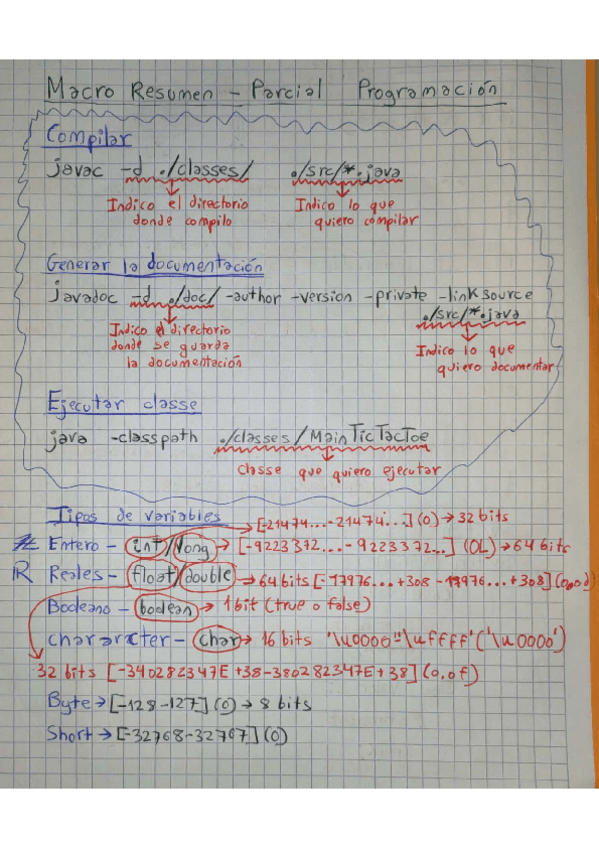 Macro Resumen - Parcial Programación
Compilar
javac -d ./classes/ ./src/*.java
Indico el directorio donde compilo
Indico lo que quiero compilar
Generar la documentación
javadoc -d ./doc/ -author -version -private -linksource
./src/*.java
Indico el directorio donde se guarda la documentación
Indico lo que quiero documentar
Ejecutar clase
java -classpath ./classes/MainTicTacToe
Clase que quiero ejecutar
Tipos de variables
[-21474...-21474...] (0) → 32 bits
ℤ Entero - int/long → [-9223372...-9223372...] (0L) → 64 bits
ℝ Reales - float/double → 64 bits [-17976...+308-17976...+308] (0,00d)
Booleano - boolean → 1 bit (true o false)
Chararacter - char → 16 bits '\u0000"\uffff' ('\u0000')
32 bits [-340282347E+38-380282347E+38] (0.0f)
Byte → [-128-127] (0) → 8 bits
Short → [-32768-32767] (0)